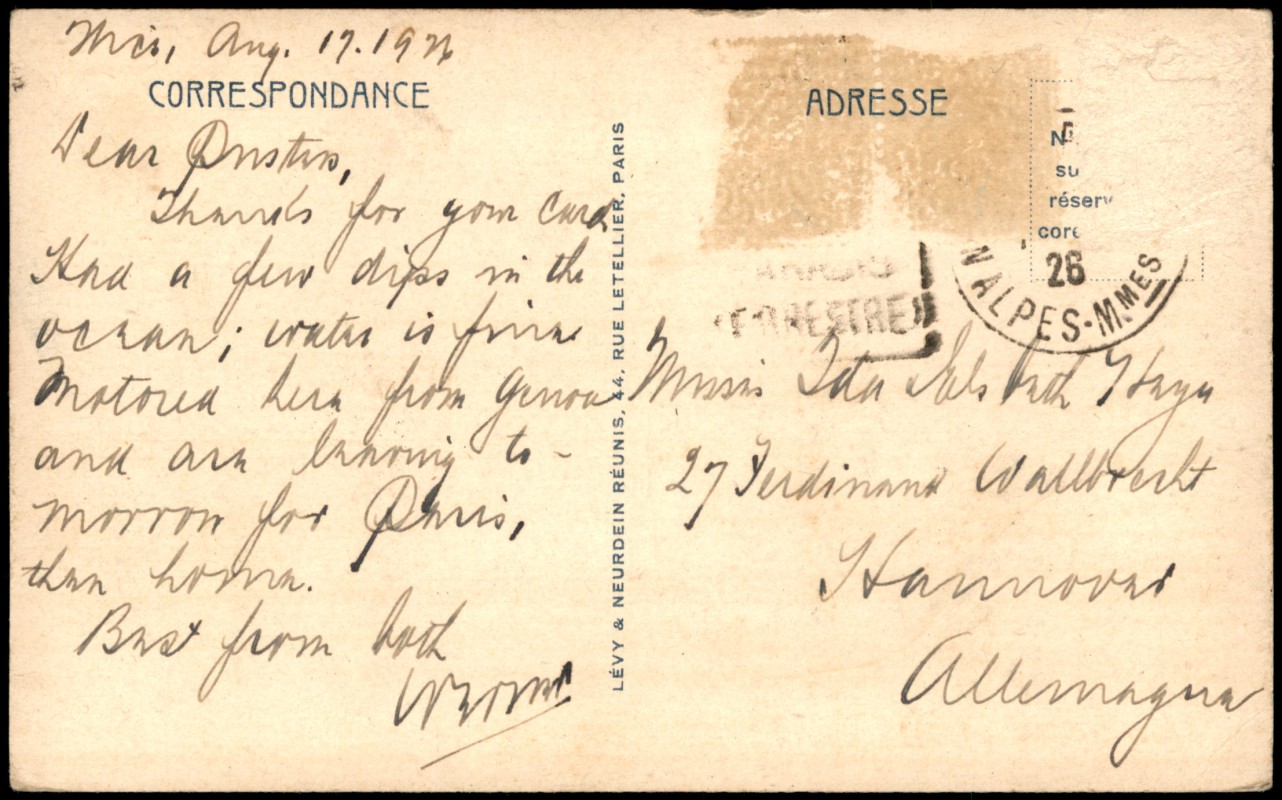 Nice, Aug. 17. 1926
CORRESPONDANCE
Dear
Thanks for your card
Had a few dips in the
ocean; water is fine
Motored here from Genoa
and are leaving to-
morrow for Paris,
then home.
Best from both
LÉVY & NEURDEIN RÉUNIS, 44, RUE LETELLIER, PARIS
ADRESSE
su
réserv
corr
26
ALPES-MMES
TERRESTRE
Ida
27 Ferdinand Wallbrecht
Hannover
Allemagne